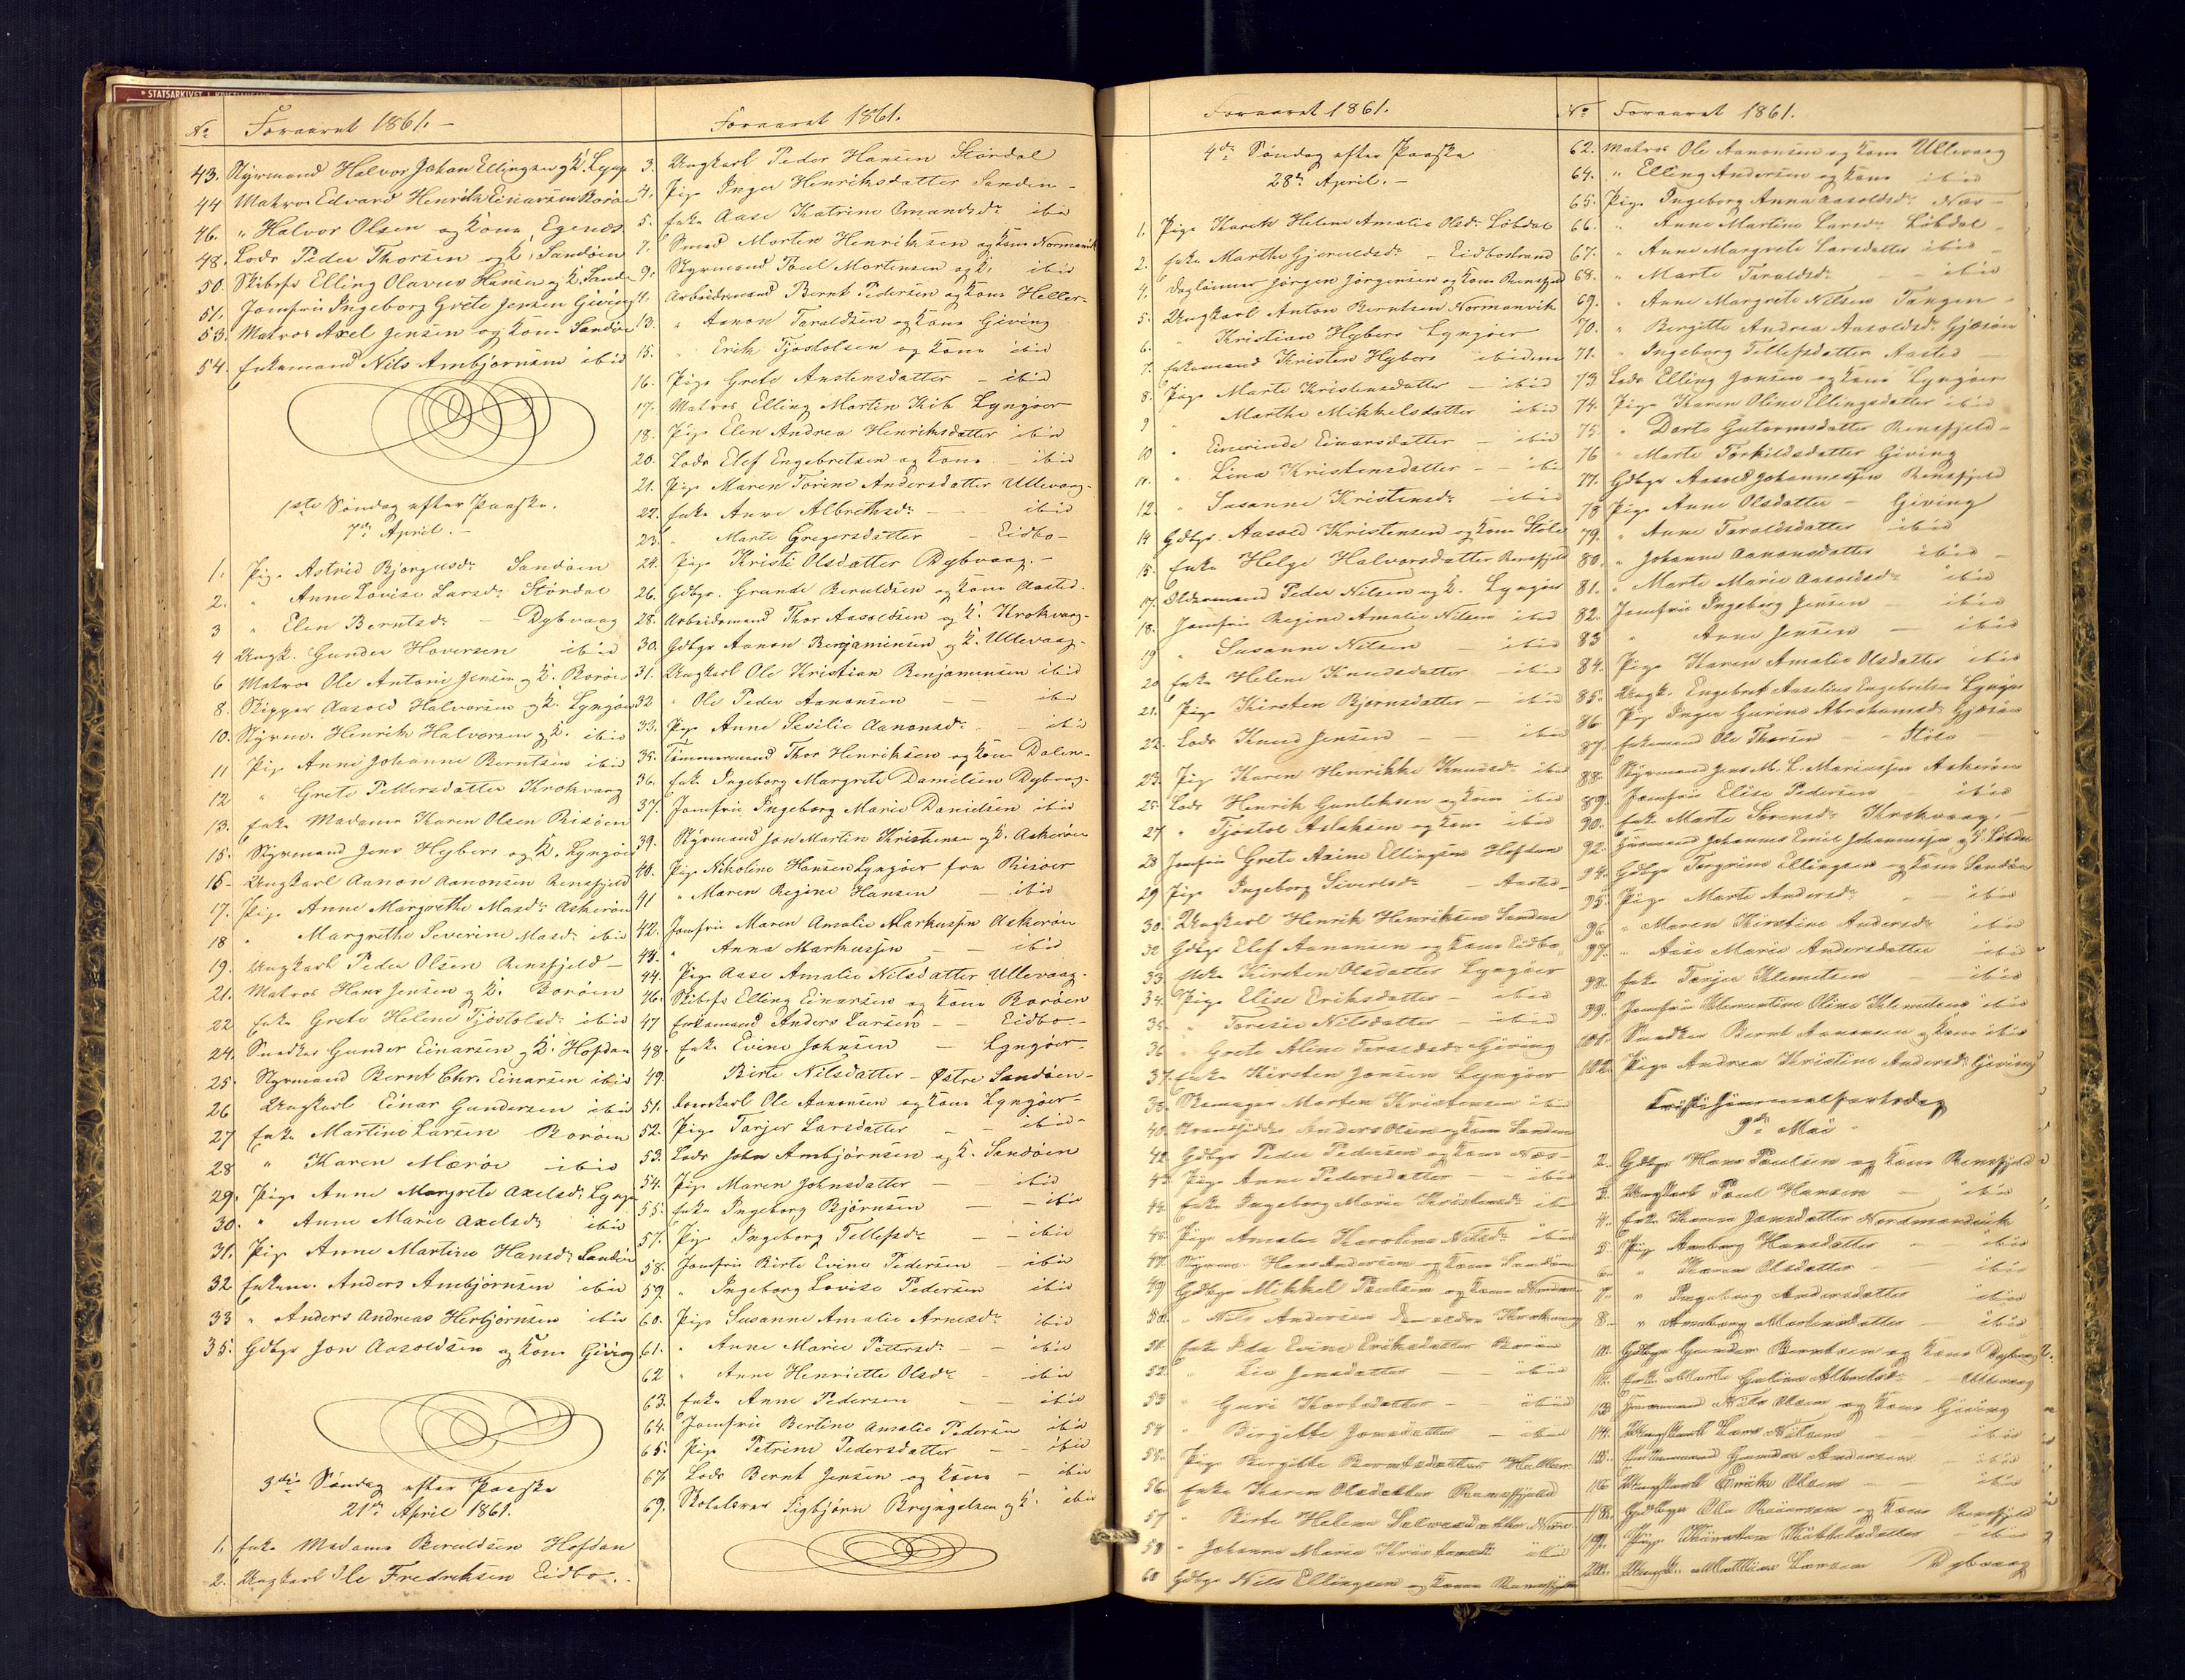 * STATSARKIVET I KRISTIANSAND
No Foraaret 1861. –
43. Styrmand Halvor Johan Ellingsen og K. Lyngø
44 Matros Edvard Henrik Einarsen Borøen
46. " Halvor Olsen og Kone Egenæs
48. Lods Peder Thorsen og K. Sandøen
50. Skibsf. Elling Olavus Hansen og K. Sand
51. Jomfru Ingeborg Grete Jensen Giving
53. Matros Axel Jensen og Kone Sandøen
54. Enkemand Nils Ambjørnsen ibid
1ste Søndag efter Paaske.
7de April. –
1. Pige Astrid Bjørgusdr Sandøen
2. " Anne Lovise Larsdr Stördal
3 " Elen Berntsdr – Dybvaag
4 Ungk. Gunder Hoversen ibid
6 Matros Ole Antoni Jensen og K. Borøen
8. Skipper Aasold Halvorsen og K. Lyngøer
10. Styrm. Henrik Halvorsen og K. ibid
11 Pige Anne Johanne Berntsen ibid
12 " Grete Pettersdatter Krokvaag
13. Enke Madame Karen Olsen Risøen
15. Styrmand Jens Hybers og K. Lyngøer
16 – Ungkarl Aanon Aanonsen Rensfjeld
17. Pige Anne Margrethe Masdr Askerøen
18 " Margrethe Severine Masdr ibid
19. Ungkarl Peder Olsen Rensfjeld –
21. Matros Hans Jensen og K. Borøen
22 Enke Grete Helene Tjøstolsdr ibid
24. Snedker Gunder Einarsen og K. Hofdan
25. Styrmand Bernt Chr. Einarsen ibid
26 Ungkarl Einar Gundersen ibid
27 Enke Martine Larsen Borøen
28 " Karen Mærøe ibid
29. Pige Anne Margrete Axelsdr Lyngø
30. " Anne Marie Axelsdr ibid
31. Pige Anne Martine Hansdr Sandøen
32 Enkem. Anders Ambjørnsen ibid
33 " Anders Andreas Herbjørnsen ibid
35. Gdbgr Jon Aasoldsen og Kone Giving
3die Søndag efter Paaske
21de April 1861.
1. Enke Madame Beruldsen Hofdan
2. Ungkarl Ole Fredriksen Eidbo.
Foraaret 1861.
3. Ungkarl Peder Hansen Stördal
4. Pige Inger Henriksdatter Sanden –
5. Enke Aase Katrine Omundsdr ibid
7. Smed Morten Henriksen og Kone Normanvik
9. Styrmand Poul Mortensen og K. ibid
11. Arbeidsmand Bernt Pedersen og Kone Heller
13. " Aanon Taraldsen og Kone Giving
15. " Erik Tjøstolsen og Kone ibid
16. Pige Grete Anstensdatter – ibid
17. Matros Elling Martin Kib Lyngøer
18. Pige Elen Andrea Henriksdatter ibid
20. Lods Elef Engebretsen og Kone – ibid
21. Pige Maren Torine Andersdatter Ullevaag –
22. Enke Anne Albrethsdr – ibid
23. " Marte Gregersdatter – Eidbo –
24. Pige Kristi Olsdatter Dybvaag. –
26. Gdbgr. Grunde Beruldsen og Kone Aasted.
28. Arbeidsmand Thor Aasoldsen og K. Krokvaag –
30. Gdbgr Aanon Benjaminsen og K. Ullevaag.
31. Ungkarl Ole Kristian Benjaminsen ibid
32 " Ole Peder Aanonsen – ibid
33. Pige Anne Sesilie Aanonsdr – ibid
35. Tømmermand Thor Henriksen og Kone Dalen –
36. Enke Ingeborg Margrete Danielsen Dybvaag –
37. Jomfru Ingeborg Marie Danielsen ibid
39. Styrmand Jon Martin Kristensen og K. Askerøen
40. Pige Nikoline Hansen Lyngøer fra Risøer
41 " Maren Regine Hansen – ibid
42. Jomfru Maren Amalie Markussen Askerøen
43. " Anna Markussen – – ibid
44. Pige Aase Amalie Nilsdatter Ullevaag.
46. Skibsf. Elling Einarsen og Kone Borøen
47 Enkemand Anders Larsen – – Eidbo. –
48. Enke Evine Johnsen – Lyngøer –
49. Birte Nilsdatter – Østre Sandøen –
51. Ole Aanonsen og Kone Lyngøer –
52. Pige Tarjer Larsdatter – – ibid –
53. Lods John Ambjørnsen og K. Sandøen
54. Pige Maren Johnsdatter – – ibid
55. Enke Ingeborg Bjørnsen – ibid
57. Pige Ingeborg Tellefsdr – – ibid
58. Jomfru Birte Evine Pedersen – ibid
59. " Ingeborg Lovise Pedersen ibid
60. Pige Susanne Amalie Arnesdr ibid
61. " Anne Marie Pettersdr – ibid
62 " Anne Henriette Olsdr – ibid
63. Enke Anne Pedersen – – ibid
64. Jomfru Bertine Amalie Pedersen ibid
65. Pige Petrine Pedersdatter – – ibid
67. Lods Bernt Jensen og Kone – ibid
69. Skolelærer Sigbjørn Bryngelsen og K. ibid
Foraaret 1861.
4de Søndag efter Paaske
28de April. –
1. Pige Karen Helene Amalie Olsdr Löbdal
2. Enke Marthe Gjeruldsdr – Eidbostrand
4. Daglønner Jörgen Jörgensen og Kone Rensfjeld
5. Ungkarl Anton Berntsen Normanvik
6. " Kristian Hybers Lyngøer
7. Enkemand Kristen Hybers ibidem
8. Pige Marte Kristensdatter – ibid
9 " Marthe Mikkelsdatter ibid
10 " Einarsdatter – ibid
11. " Lina Kristensdatter – ibid
12. " Susanne Kristensdr – ibid
14 Gdbgr. Aasold Kristensen og Kone Stöle
15. Enke Helge Halvorsdatter Rensfjeld
17. Oldermand Peder Nilsen og K. Lyngøer
18. Jomfru Regine Amalie Nilsen ibid
19 " Susanne Nilsen – ibid
20 Enke Helene Knudsdatter – ibid
21. Pige Kirsten Bjørnsdatter – ibid
22. Lods Knud Jensen – – ibid
23. Pige Karen Henrikke Knudsdr ibid
25. Lods Henrik Gunleksen og Kone ibid
27 " Tjöstol Aslaksen og Kone ibid
28 Jomfru Grete Ellingsen Hofdan
29 Pige Ingeborg Sivertsdr – Aasted –
30. Ungkarl Henrik Henriksen Sanden
32 Gdbgr Elef Aanonsen og Kone Eidbo
33. Enke Kirsten Olsdatter Lyngøer
34. Pige Elise Eriksdatter – ibid
35. " Teresie Nilsdatter – ibid
36 " Grete Aline Taraldsdr Giving
37. Enke Kirsten Jensen Lyngøer
38. Morten Kristensen ibid
40. Anders Olsen og Kone Sanden
42. Gdbgr Peder Pedersen og Kone Næs –
43. Pige Anne Pedersdatter – – ibid
44. Enke Ingeborg Marie Kristensdr ibid
45. Pige Amalie Karoline Nilsdr ibid
47. Styrm. Hans Andersen og Kone Sandøen
49. Gdbgr Mikkel Poulsen og Kone
50. " Nils Andersen Krokvaag
51. Enke Ida Evine Eriksdatter Borøen
52. " Lis Jensdatter – – ibid
53 " Guri Karlsdatter – ibid
54 " Birgitte Jonsdatter – ibid
55. Pige Birgitte Berntsdatter Heller
56. Enke Karen Olsdatter Rensfjeld
57 " Birte Helene
58 " Johanne Marie ibid
60 Gdbgr Nils Ellingsen og Kone Rensfjeld
No Foraaret 1861.
62. Matros Ole Aanonsen og Kone Ullevaag
64. " Elling Andersen og Kone ibid
65. Pige Ingeborg Anna Aasoldsdr Næs –
66. " Anne Martine Larsdr Löbdal –
67. " Anne Margrete Larsdatter ibid –
68. " Marte Taraldsdr – – ibid
69. " Anne Margrete Nilsen Tangen –
70. " Bergitte Andrea Aasoldsdr Gjæsøen
71. " Ingeborg Tellefsdatter Aasted
73. Lods Elling Jensen og Kone Lyngøer
74. Pige Karen Oline Ellingsdatter ibid
75. " Dorte Gutormsdatter Rensfjeld –
76 " Marte Torkildsdatter Giving
77. Gdbgr Aasold Johannessen Rensfjeld
78 Pige Anne Olsdatter – Giving
79. " Anne Taraldsdatter ibid
80. " Johanne Aanonsdatter ibid –
81. " Marte Marie Aasoldsdr ibid
82. Jomfru Ingeborg Jensen – ibid
83 " Anne Jensen – ibid
84. Pige Karen Amalie Olsdatter ibid
85. Ungk. Engebret Aanelius Engebretsen Lyngøer
86 Pige Inger Gurine Abrahamsdr Gjæsøen
87. Enkemand Ole Thorsen – – Stöle –
88. Styrmand Jens M. L. Mariussen Askerøen
89. Jomfru Elise Pedersen – ibid
90. Enke Marte Sørensdr Krokvaag. –
92. Johannes Emil Johannessen og K. Löbdal
94. Gdbgr Torgrim Ellingsen og Kone Sandøen
95. Pige Marte Andersdr – ibid
96. " Maren Kirstine Andersdr ibid
97. " Aase Marie Andersdatter ibid
98. Enke Tarjer Klemetsen – ibid
99. Jomfru Klementine Oline Klemetsen ibid
101. Snedker Bernt Aanonsen og Kone ibid
102. Pige Andrea Kristine Andersdr Giving
Kristi Himmelfartsdag
9de Mai –
2. Gdbgr Hans Poulsen og Kone Rensfjeld
3. Ungkarl Poul Hansen – ibid
4. Enke Karen Jonsdatter Nordmandvik
5. Pige Amborg Hansdatter – ibid
6. " Karen Olsdatter – ibid
7. " Ingeborg Andersdatter ibid
8. " Amborg Mortensdatter – ibid
10. Gdbgr Gunder Berntsen og Kone Dybvaag
11. Enke Marte Gurine Albretsdr – Ullevaag
13. Nils Olsen og Kone Giving
14. Ungkarl Lars Nilsen – – ibid
15. Gunder Andersen – ibid
16. Ungkarl Erik Olsen – – ibid
18. Gdbgr Ole og Kone Rensfjeld
19. Pige Mikkelsdatter – ibid
20. Ungk. Mathias Larsen Dybvaag